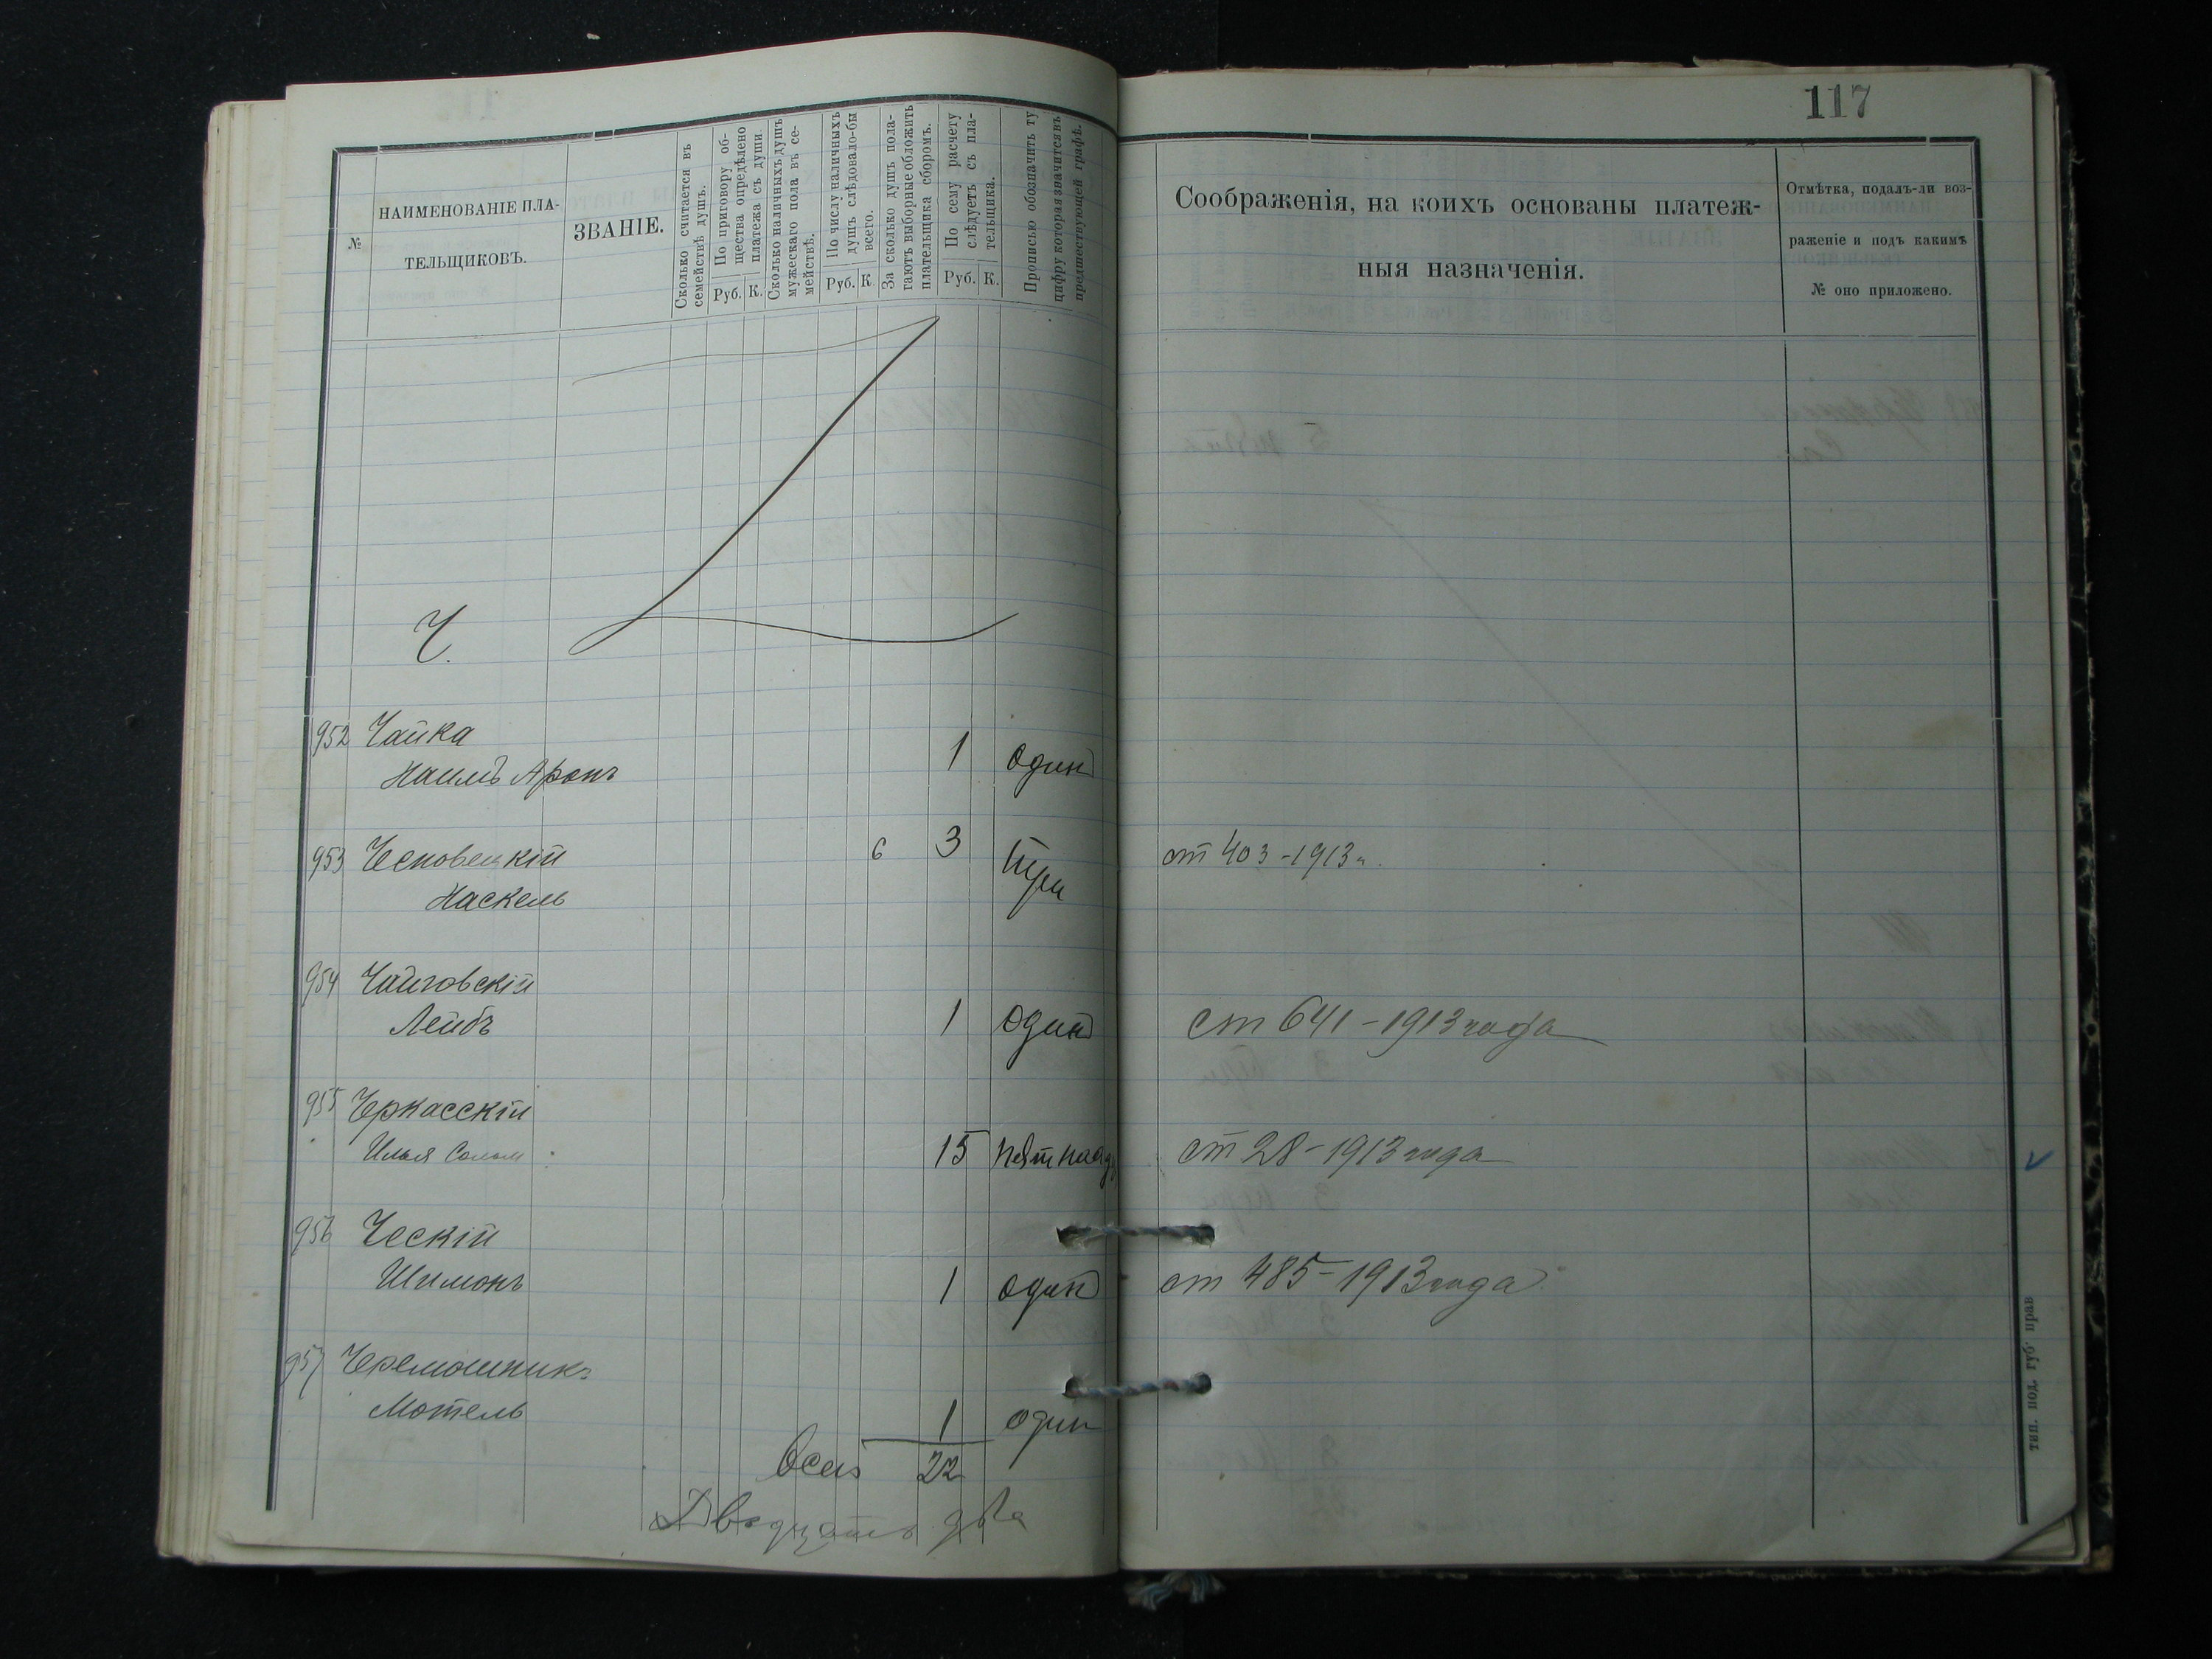 117
№
НАИМЕНОВАНІЕ ПЛА-
ТЕЛЬЩИКОВЪ.
ЗВАНІЕ.
Сколько считается въ
семействѣ душъ.
По приговору об-
щества опредѣлено
платежа съ души.
Руб. К.
Сколько наличныхъ душъ
мужескаго пола въ се-
мействѣ.
По числу наличныхъ
душъ слѣдовало-бы
всего.
Руб. К.
За сколько душъ пола-
гаютъ выборные обложить
плательщика сборомъ.
По сему расчету
слѣдуетъ съ пла-
тельщика.
Руб. К.
Прописью обозначить ту
цифру которая значится въ
предшествующей графѣ.
Соображенія, на коихъ основаны платеж-
ныя назначенія.
Отмѣтка, подалъ-ли воз-
раженіе и подъ какимъ
№ оно приложено.
Ч.
952 Чайка
Хаимъ Аронъ 1 одинъ
953 6 3 три ст 403-1913 г.
Хаскель
954 Чайговскій
Лейбъ 1 одинъ ст 641-1913 года
955 Черкасскій
Илья Солом 15 пятнадц ст 28-1913 года
956 Ческій
Шимонъ 1 одинъ ст 485-1913 года
957 Черемошникъ
Мотель 1 один
Всего 22
Двадцать два
тип. под. губ. прав